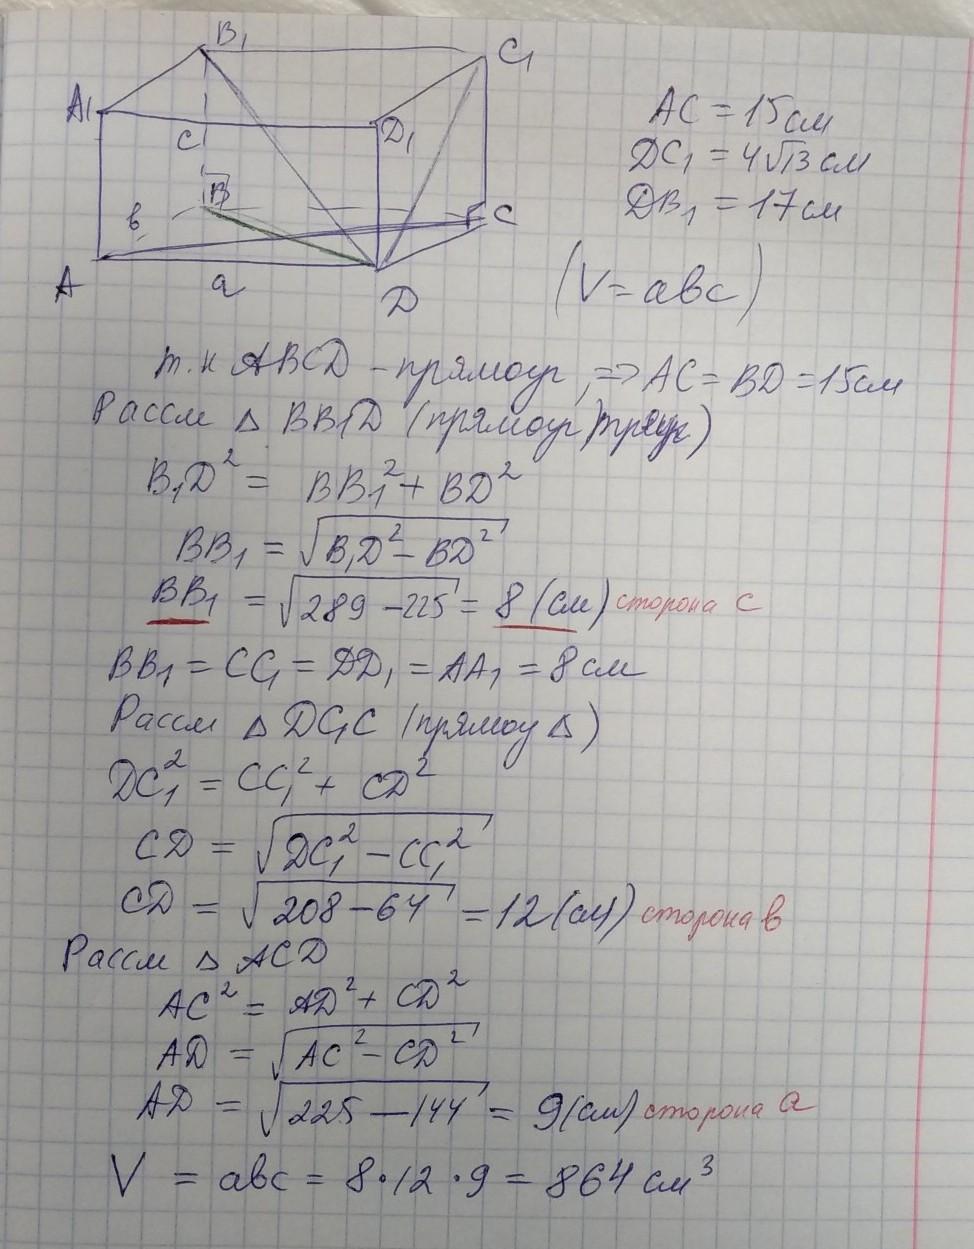 B₁
C₁
A₁
D₁
c
B
в
C
A
a
D
AC = 15 см
DC₁ = 4√13 см
DB₁ = 17 см
(V = aвc)
т.к ABCD - прямоуг, => AC = BD = 15 см
Рассм △ BB₁D (прямоуг треуг)
B₁D² = BB₁² + BD²
BB₁ = √B₁D² - BD²
BB₁ = √289 - 225 = 8 (см) сторона c
BB₁ = CC₁ = DD₁ = AA₁ = 8 см
Рассм △ DC₁C (прямоу △)
DC₁² = CC₁² + CD²
CD = √DC₁² - CC₁²
CD = √208 - 64 = 12 (см) сторона в
Рассм △ ACD
AC² = AD² + CD²
AD = √AC² - CD²
AD = √225 - 144 = 9 (см) сторона a
V = aвc = 8·12·9 = 864 см³